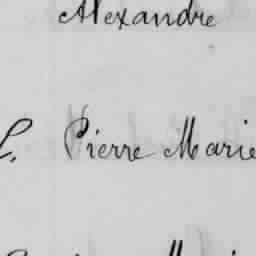 Alexandre
L. Pierre Marie